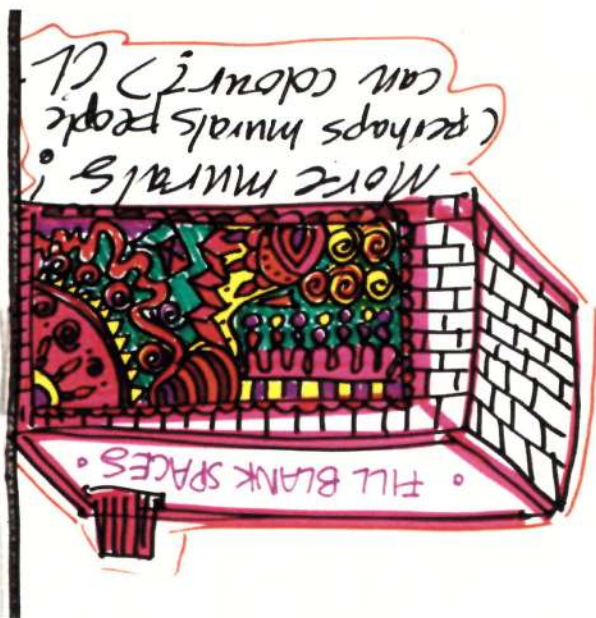 • FILL BLANK SPACES •
More murals!
(perhaps murals people
can colour?)